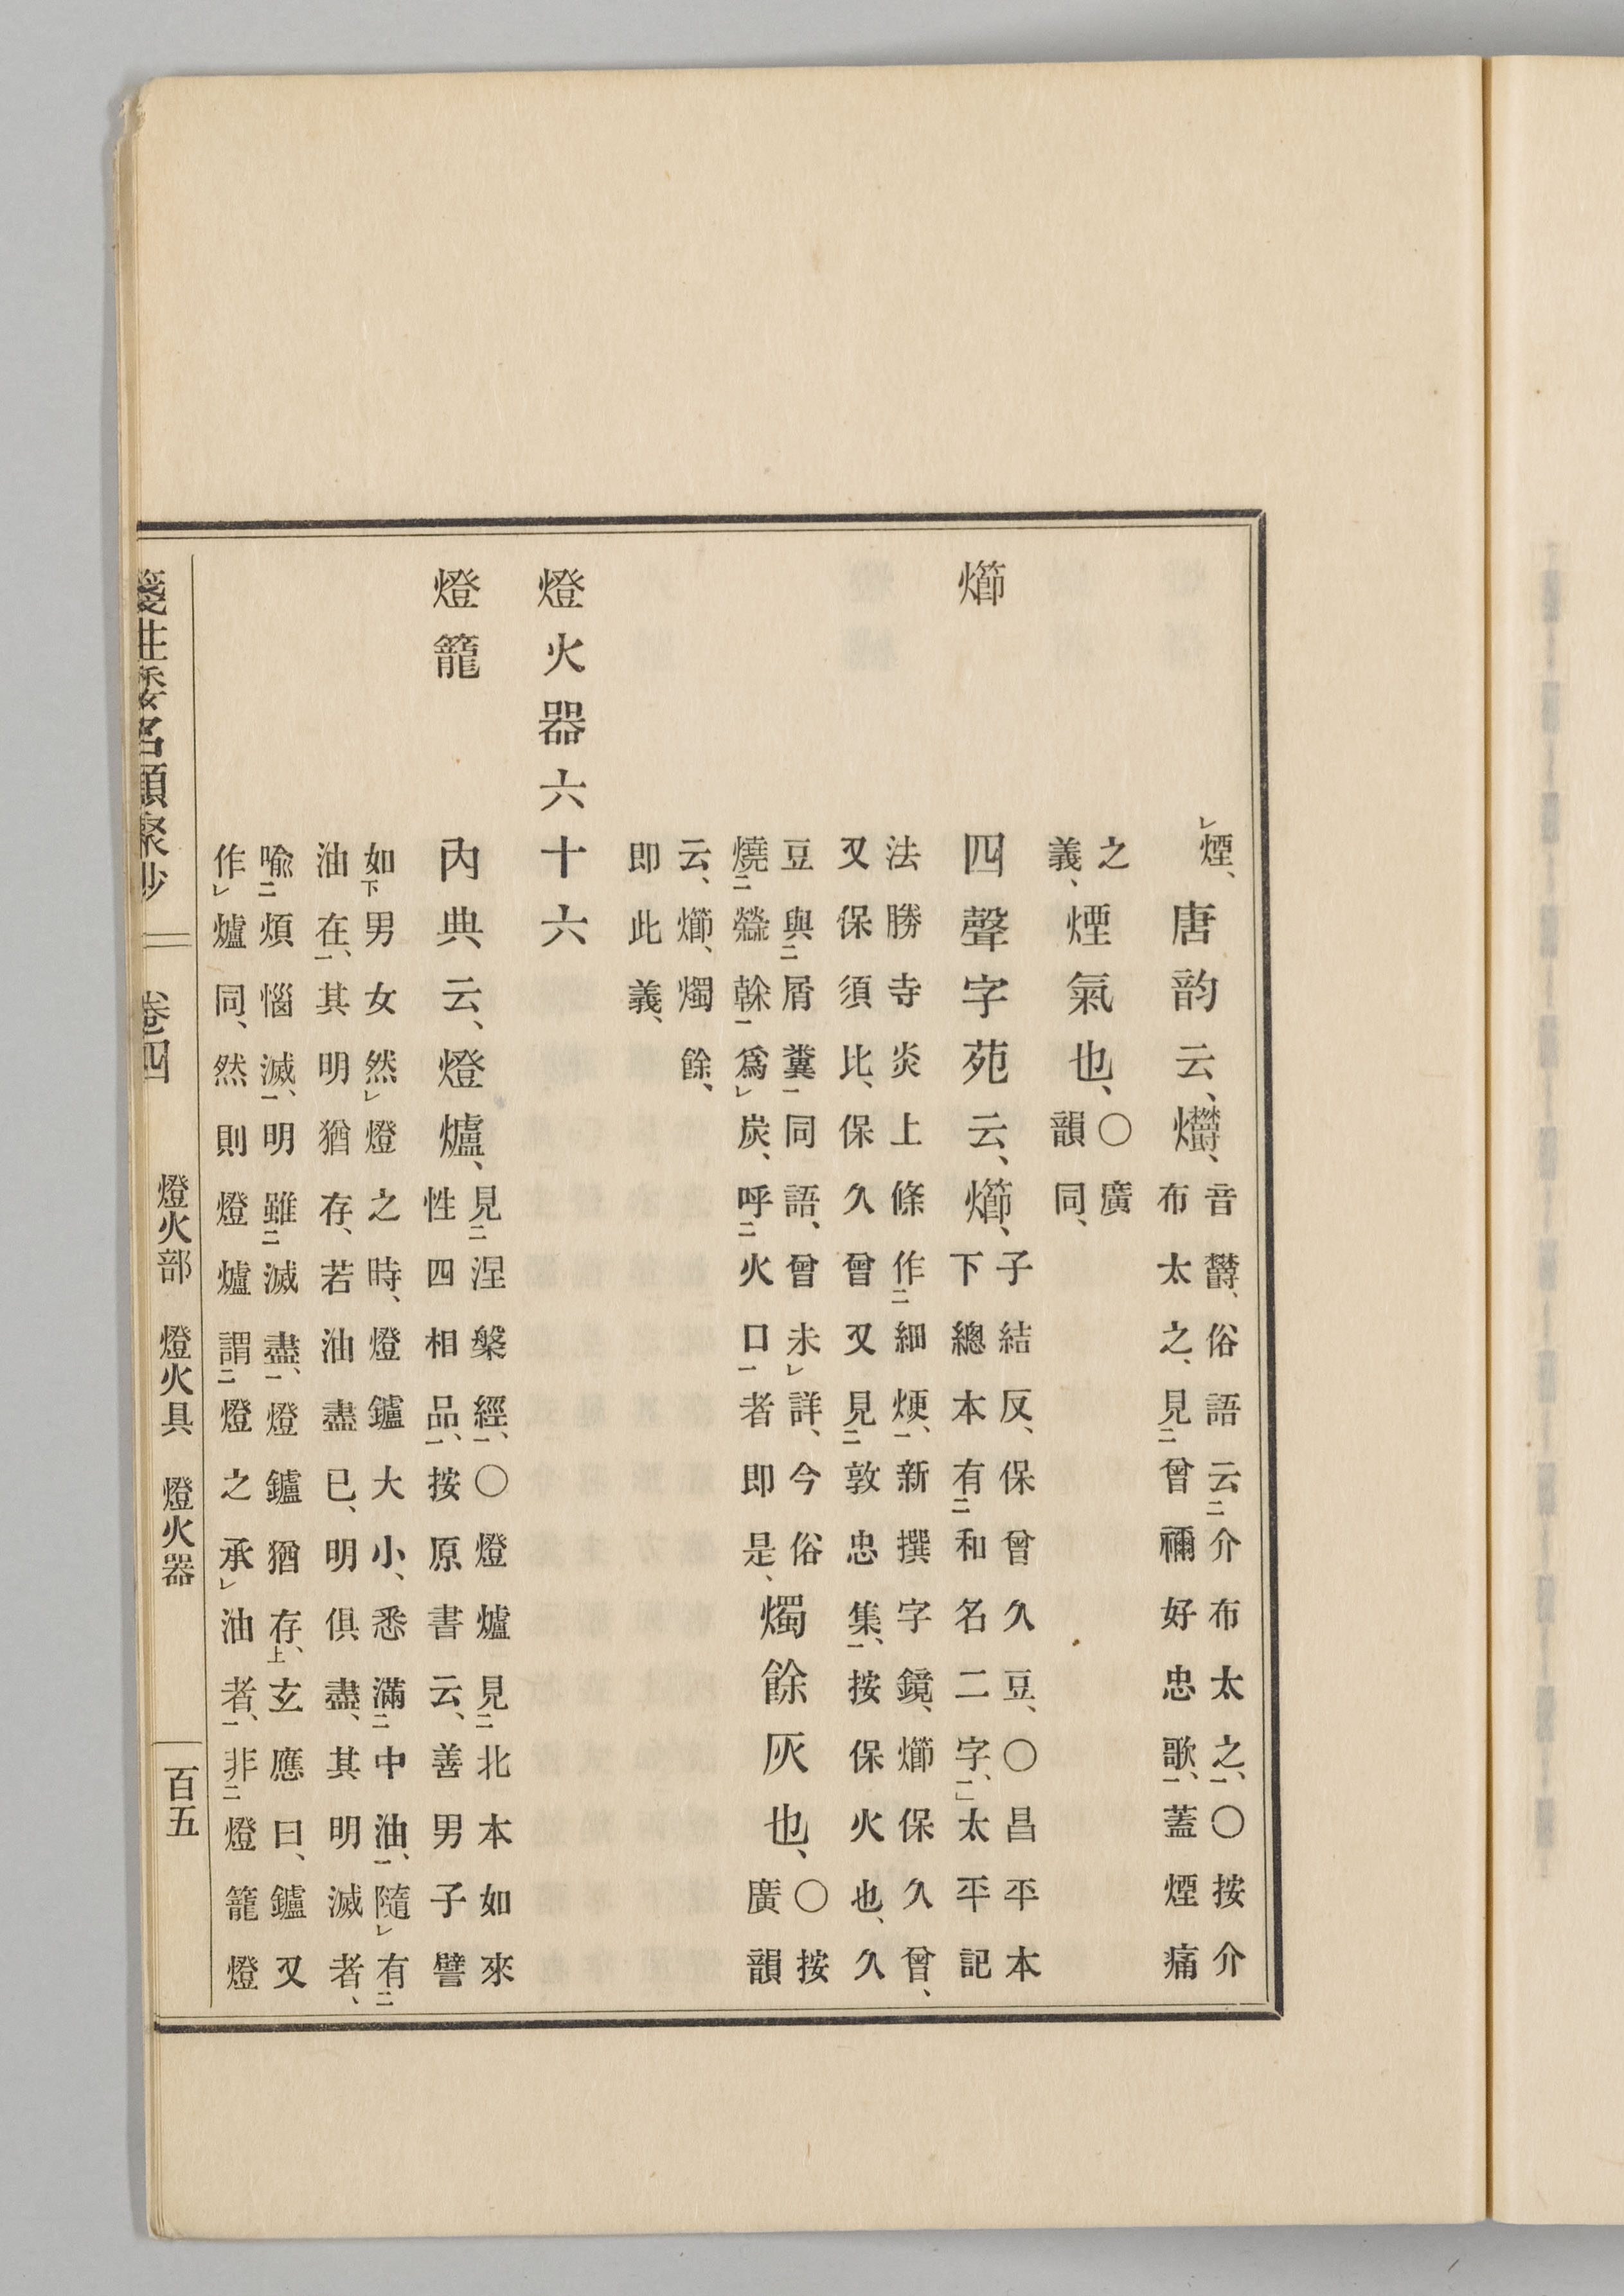 煙、唐韵云、爩、音鬱、俗語云二介布太之一、〇按介
布太之、見二曾禰好忠歌一、蓋煙痛
之
義、煙氣也、〇廣
韻同、
㸅 四聲字苑云、㸅、子結反、保曾久豆、〇昌平本
下總本有二和名二字一、太平記
法勝寺炎上條作二細焿一、新撰字鏡、㸅保久曾、
又保須比、保久曾又見二敦忠集一、按保火也、久
豆與二屑糞一同語、曾未レ詳、今俗
燒二榦一爲レ炭、呼二火口一者即是、燭餘灰也、〇按
廣韻
云、㸅、燭餘、
即此義、
燈火器六十六
燈籠 内典云、燈爐、見二涅槃經一、〇燈爐見二北本如來
性四相品一、按原書云、善男子譬
如下男女然レ燈之時、燈鑪大小、悉滿二中油一、隨レ有二
油在一、其明猶存、若油盡已、明俱盡、其明滅者、
喩二煩惱滅一、明雖二滅盡一、燈鑪猶存上、玄應曰、鑪又
作レ爐同、然則燈爐謂二燈之承レ油者一、非二燈籠燈
箋注倭名類聚抄 卷四 燈火部 燈火具 燈火器 百五